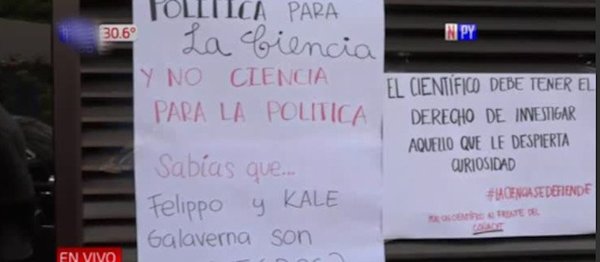 30.6°
NPY
POLITICA PARA
La Ciencia
Y NO CIENCIA
PARA LA POLITICA
Sabías que...
Felippo y KALE
Galaverna son
EL CIENTÍFICO DEBE TENER EL
DERECHO DE INVESTIGAR
AQUELLO QUE LE DESPIERTA
CURIOSIDAD
#LACIENCIASEDEFIENDE
POR UN CIENTÍFICO AL FRENTE DEL
CONACYT
EN VIVO